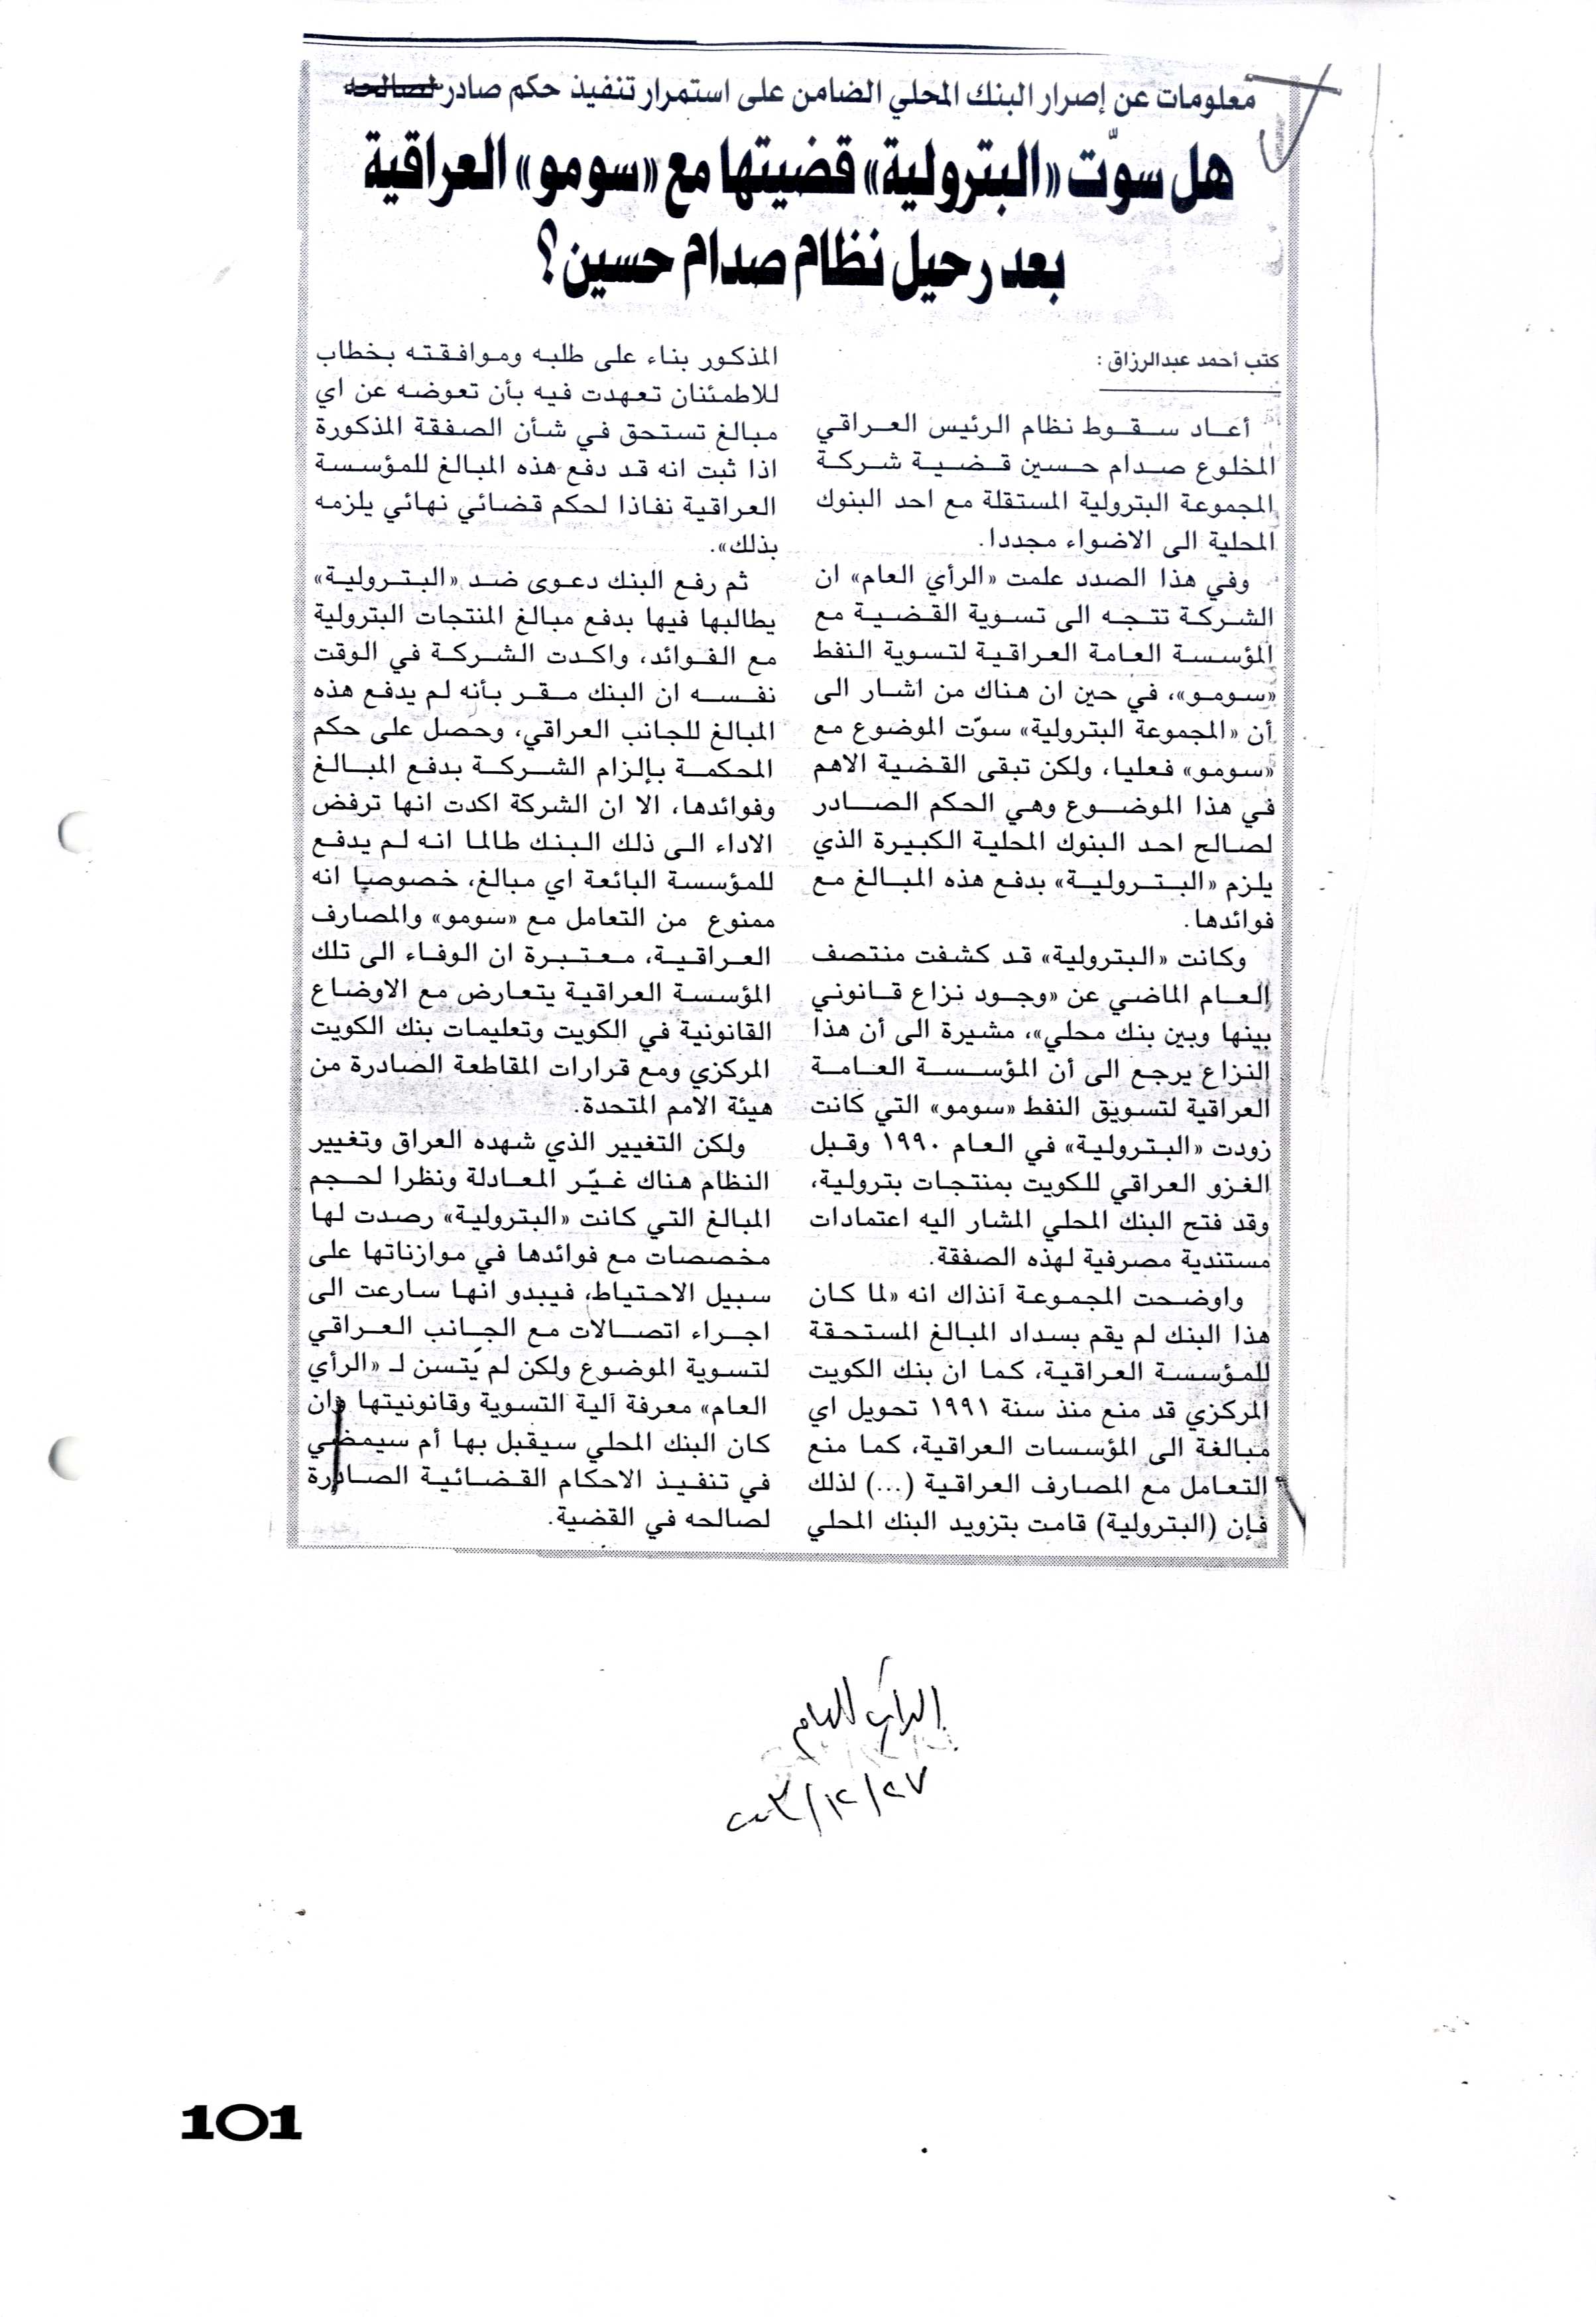 معلومات عن إصرار البنك المحلي الضامن على استمرار تنفيذ حكم صادر لصالحه
هل سوّت «البترولية» قضيتها مع «سومو» العراقية
بعد رحيل نظام صدام حسين؟
كتب أحمد عبدالرزاق :
أعاد سقوط نظام الرئيس العراقي
المخلوع صدام حسين قضية شركة
المجموعة البترولية المستقلة مع احد البنوك
المحلية الى الاضواء مجددا.
وفي هذا الصدد علمت «الرأي العام» ان
الشركة تتجه الى تسوية القضية مع
المؤسسة العامة العراقية لتسوية النفط
«سومو»، في حين ان هناك من اشار الى
أن «المجموعة البترولية» سوّت الموضوع مع
«سومو» فعليا، ولكن تبقى القضية الاهم
في هذا الموضوع وهي الحكم الصادر
لصالح احد البنوك المحلية الكبيرة الذي
يلزم «البترولية» بدفع هذه المبالغ مع
فوائدها.
وكانت «البترولية» قد كشفت منتصف
العام الماضي عن «وجود نزاع قانوني
بينها وبين بنك محلي»، مشيرة الى أن هذا
النزاع يرجع الى أن المؤسسة العامة
العراقية لتسويق النفط «سومو» التي كانت
زودت «البترولية» في العام ١٩٩٠ وقبل
الغزو العراقي للكويت بمنتجات بترولية،
وقد فتح البنك المحلي المشار اليه اعتمادات
مستندية مصرفية لهذه الصفقة.
واوضحت المجموعة آنذاك انه «لما كان
هذا البنك لم يقم بسداد المبالغ المستحقة
للمؤسسة العراقية، كما ان بنك الكويت
المركزي قد منع منذ سنة ١٩٩١ تحويل اي
مبالغة الى المؤسسات العراقية، كما منع
التعامل مع المصارف العراقية (...) لذلك
فإن (البترولية) قامت بتزويد البنك المحلي
المذكور بناء على طلبه وموافقته بخطاب
للاطمئنان تعهدت فيه بأن تعوضه عن اي
مبالغ تستحق في شأن الصفقة المذكورة
اذا ثبت انه قد دفع هذه المبالغ للمؤسسة
العراقية نفاذا لحكم قضائي نهائي يلزمه
بذلك».
ثم رفع البنك دعوى ضد «البترولية»
يطالبها فيها بدفع مبالغ المنتجات البترولية
مع الفوائد، واكدت الشركة في الوقت
نفسه ان البنك مقر بأنه لم يدفع هذه
المبالغ للجانب العراقي، وحصل على حكم
المحكمة بإلزام الشركة بدفع المبالغ
وفوائدها، الا ان الشركة اكدت انها ترفض
الاداء الى ذلك البنك طالما انه لم يدفع
للمؤسسة البائعة اي مبالغ، خصوصيا انه
ممنوع من التعامل مع «سومو» والمصارف
العراقية، معتبرة ان الوفاء الى تلك
المؤسسة العراقية يتعارض مع الاوضاع
القانونية في الكويت وتعليمات بنك الكويت
المركزي ومع قرارات المقاطعة الصادرة من
هيئة الامم المتحدة.
ولكن التغيير الذي شهده العراق وتغيير
النظام هناك غيّر المعادلة ونظرا لحجم
المبالغ التي كانت «البترولية» رصدت لها
مخصصات مع فوائدها في موازناتها على
سبيل الاحتياط، فيبدو انها سارعت الى
اجراء اتصالات مع الجانب العراقي
لتسوية الموضوع ولكن لم يتسن لـ «الرأي
العام» معرفة آلية التسوية وقانونيتها وان
كان البنك المحلي سيقبل بها أم سيمضي
في تنفيذ الاحكام القضائية الصادرة
لصالحه في القضية.
الرأي العام
٢٠٠٣/١٢/٢٧
101